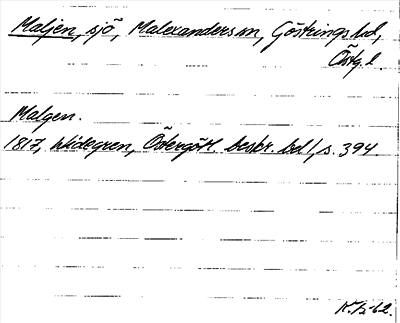 Maljen, sjö, Malexanders sn, Göstrings hd,
Östg. l.
Malgen.
1817, Widegren, Östergötl. beskr. bd 1, s. 394